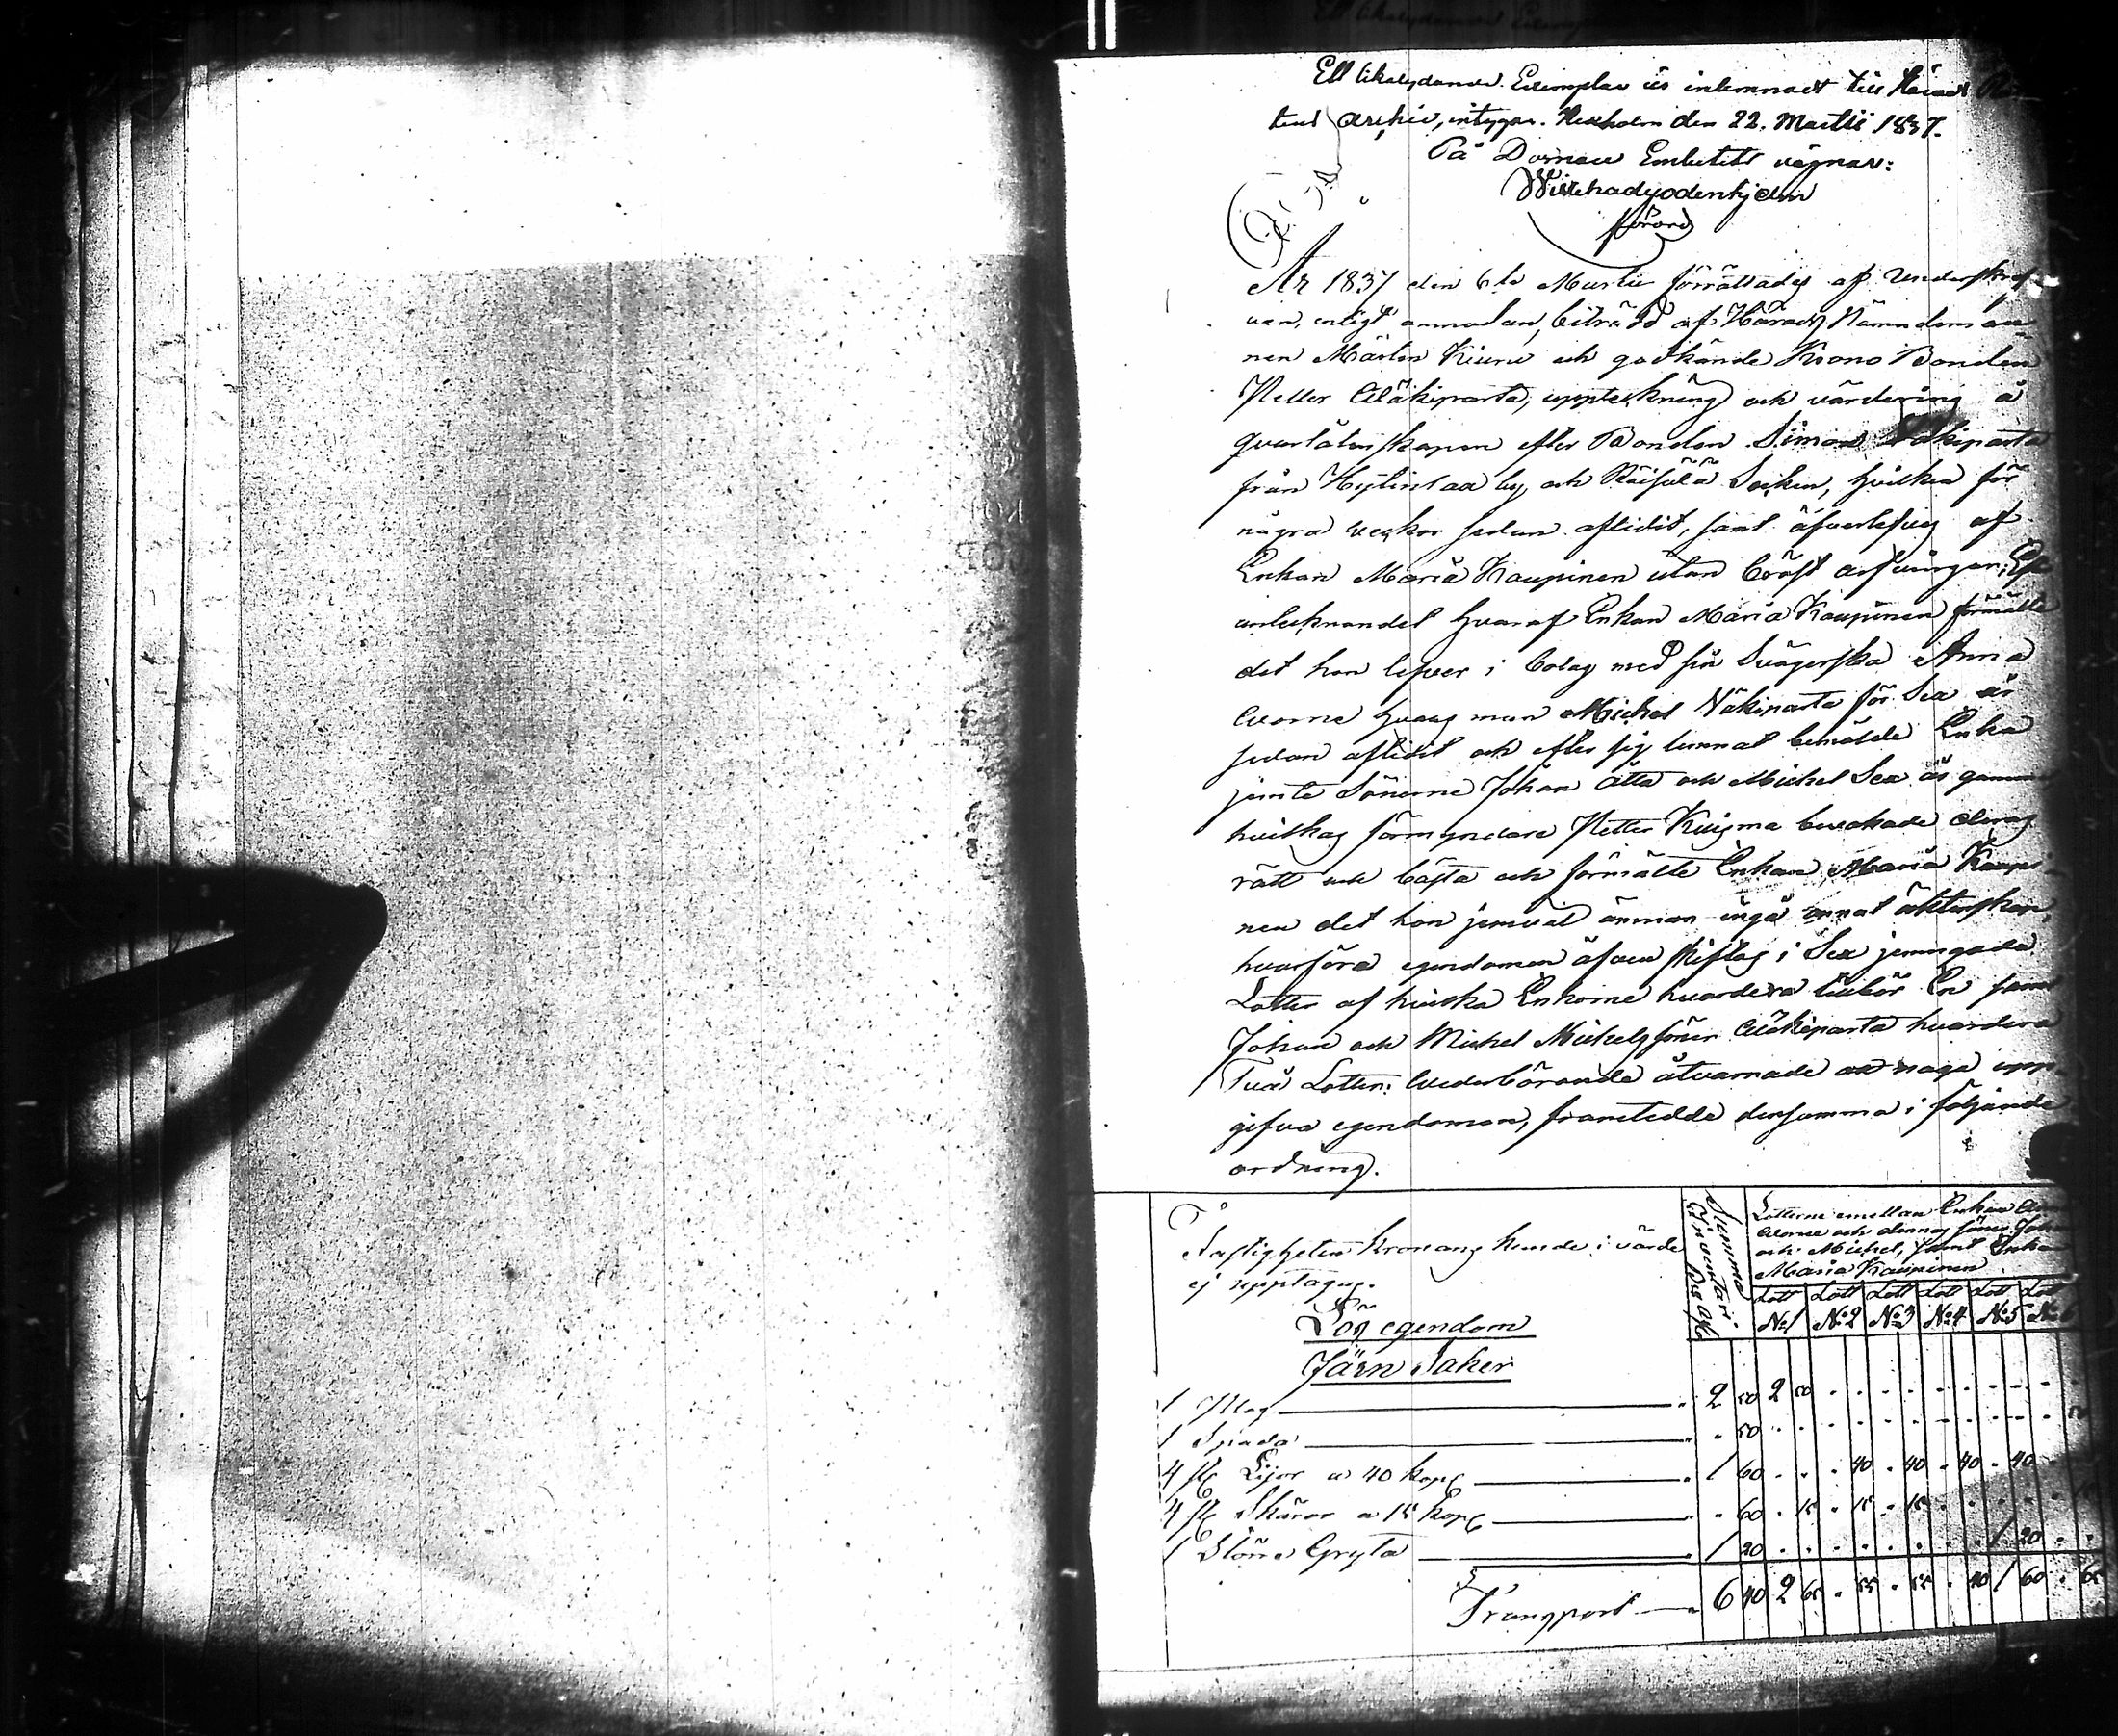 Ett likalydande Exemplar är inlemnadt till Härads Rät
tens archiv, intygar. Kexholm den 22. Martii 1837.
På Domare Embetets vägnar:
förord
År 1837 den 6te Martii förrättades af undertskref
ven, enligt anmodan, biträdd af Härads Nämndemän
nen Mårten Kiuru och godkände Krono Bonden
Petter Näkiparta, uppteckning och värdering å
qvarlåtenskapen efter Bonden Simon Näkiparta
från Hytinlax by och Räisälä Socken, hvilken för
några veckor sedan aflidit, samt äfverlefves af
Enkan Maria Kaupinen utan bröst arfvingar;
hvaraf Enkan Maria Kaupinen förmälte
det hon lefver i bolag med sin Svägerska Anna
hvars man Michel Näkiparta för Sex år
sedan aflidit och efter sig lemnat bemälde Enka
jemte Sönerne Johan åtta och Michel Sex år gamm
hvilkas förmyndare Petter Kuisma bevakade deras
rätt och bästa och förmälte Enkan Maria Kaupi-
nen det hon jemväl ämnar ingå annat äktenskap,
hvarföre egendomen äfven skiftas i Sex jemngoda
Lotter af hvilka Enkorne hvardera tillhör En samt
Johan och Michel Michelssöner Näkiparta hvardera
Två Lotter: Vederbörande åtvarnade att noga upp-
gifva egendomen, framtedde densamma i följande
ordning.
Fastigheten Kronans kunde i värde
ej upptagas.
Summa Inventari
Lotterne emellan Enkan
och dennes söner Johan
och Michel, samt Enkan
Maria Kaupinen
Lott Lott Lott Lott Lott Lott
No 1 No 2 No 3 No 4 No 5 No 6
Lös egendom
Järn Saker
1 Plog 2 50 2 50
1 Spada 50 50
4 st Lijor a 40 kop 1 60 40 40 40 40
4 st Skäror a 15 kop 60 15 15 15 15
1 Större Gryta 1 20 1 20
Transport 6 40 2 65 55 55 40 1 60 65